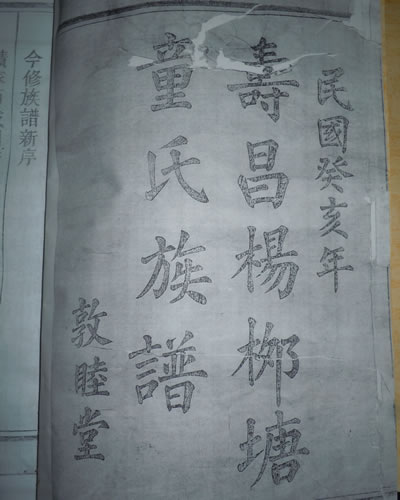 民國癸亥年
壽昌楊栁塘
童氏族譜
敦睦堂
今修族譜新序